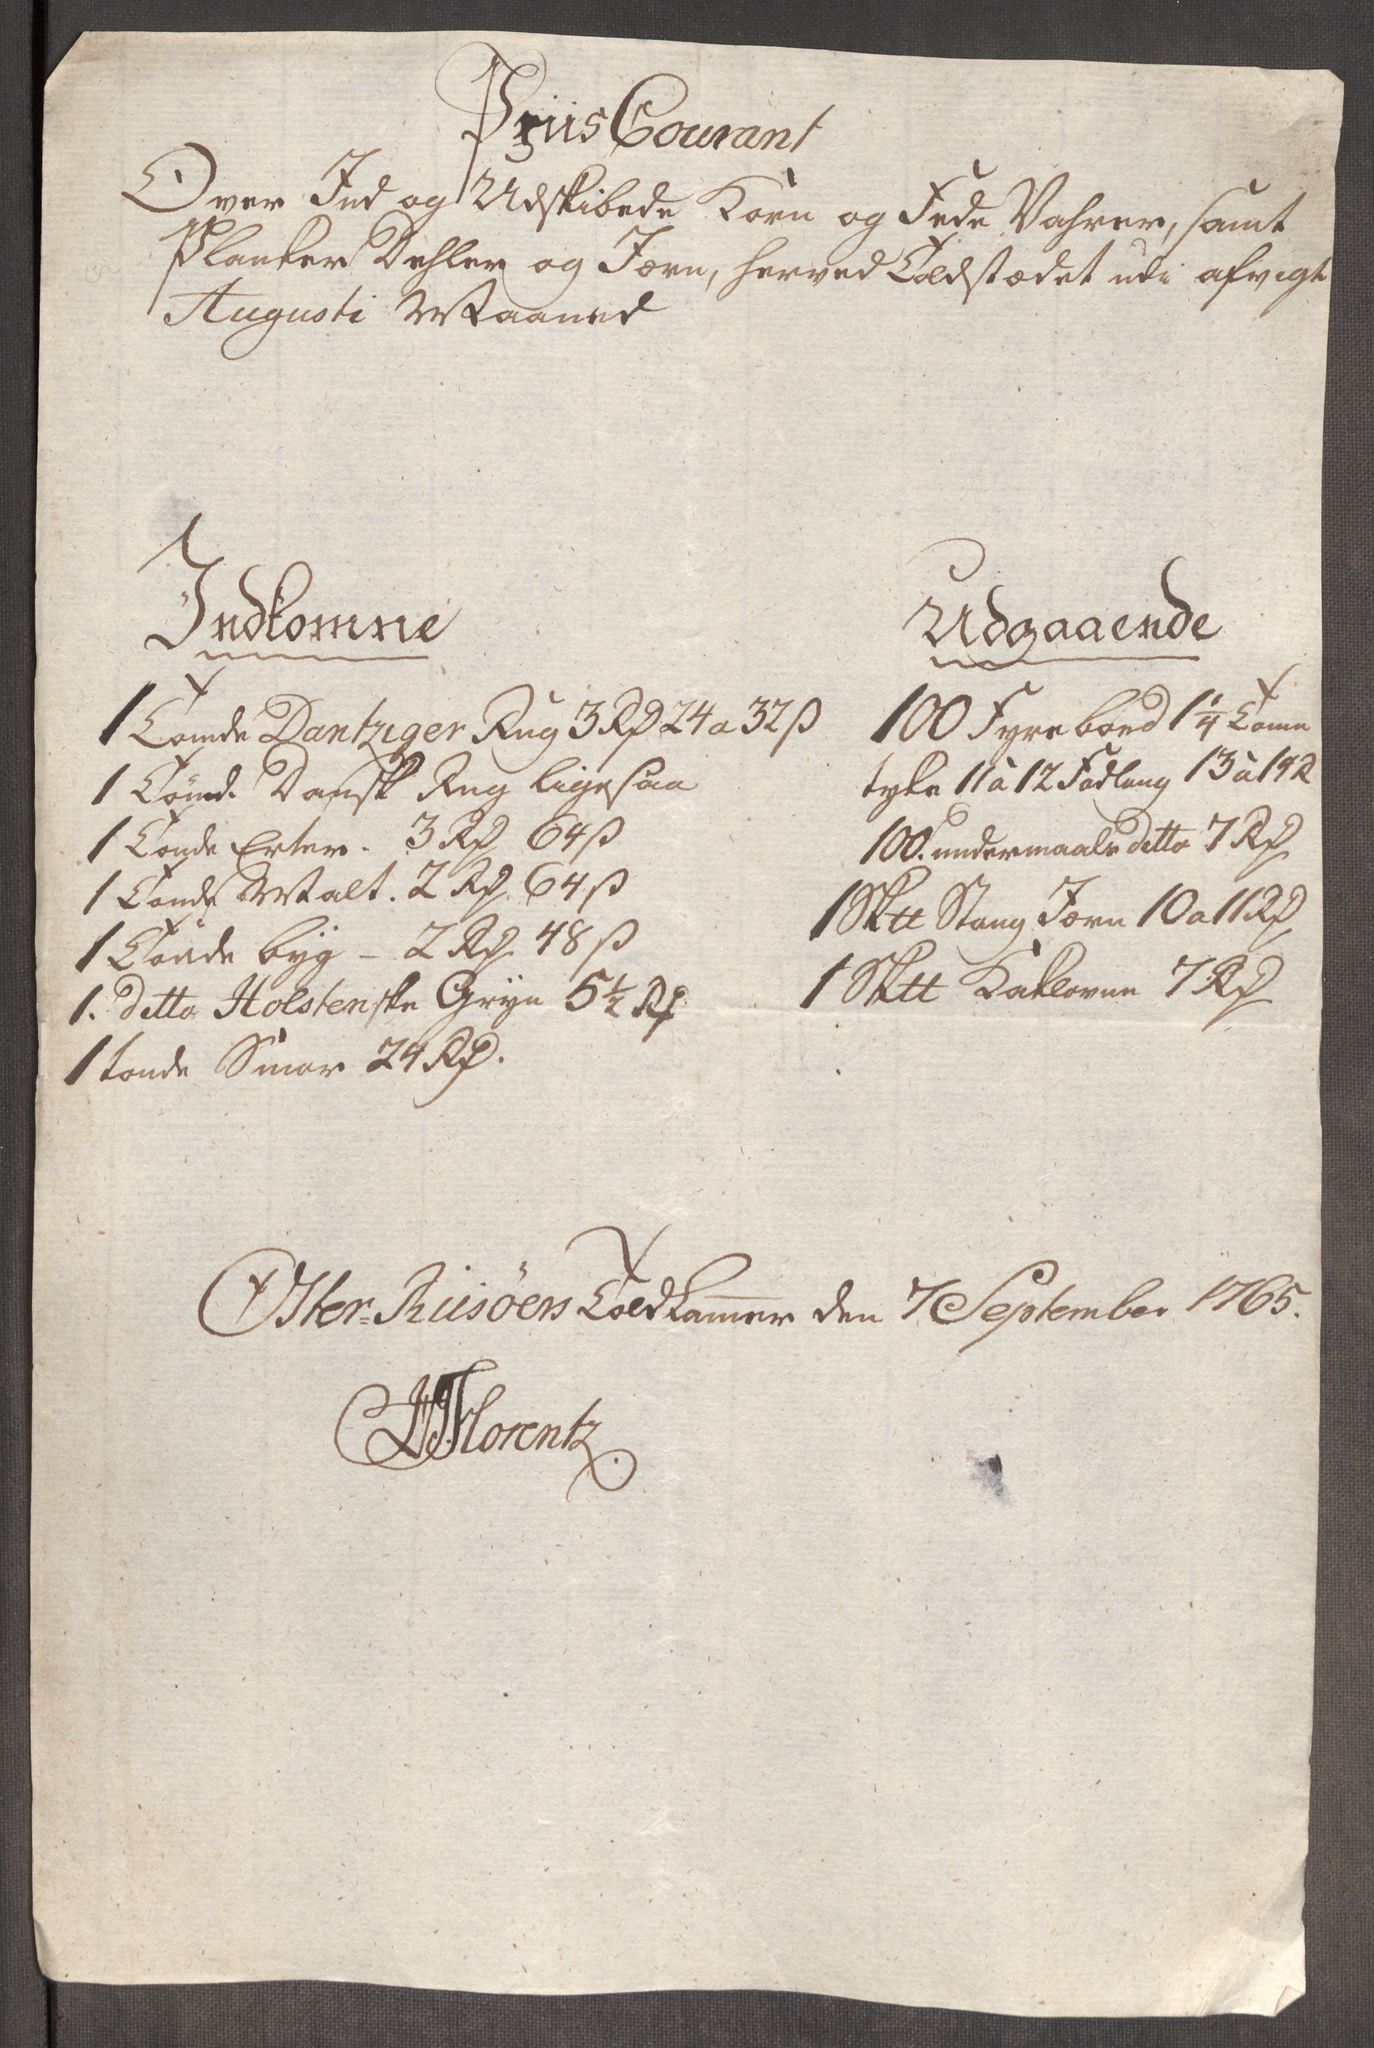 Priis Courant
Over Ind og Udskibede Korn og Fede Vahrer, samt
Planker Dehler og Jern, herved Toldstædet udi afvigte
Augusti Maaned
Indkomne
1 Tonde Dantziger Rug 3 Rd 24 a 32 ß
1 Tønd. Dansk Rug ligesaa
1 Tonde Erter. 3 Rd 64 ß
1 Tonde Malt. 2 Rd 64 ß
1 Tønde byg - 2 Rd 48 ß
1. ditto Holstenske Gryn 5 1/2 Rd
1 tonde Smør 24 Rd.
Udgaaende
100 Fyrebord 1 1/4 Tome
tyke 11 à 12 Fod lang 13 à 14 R
100. undermaals ditto 7 Rd
1 Sktt Stang Jern 10 a 11 Rd
1 Sktt Kakloune 7 Rd
Oster-Riisøers Toldkammer den 7 September 1765.
Florentz